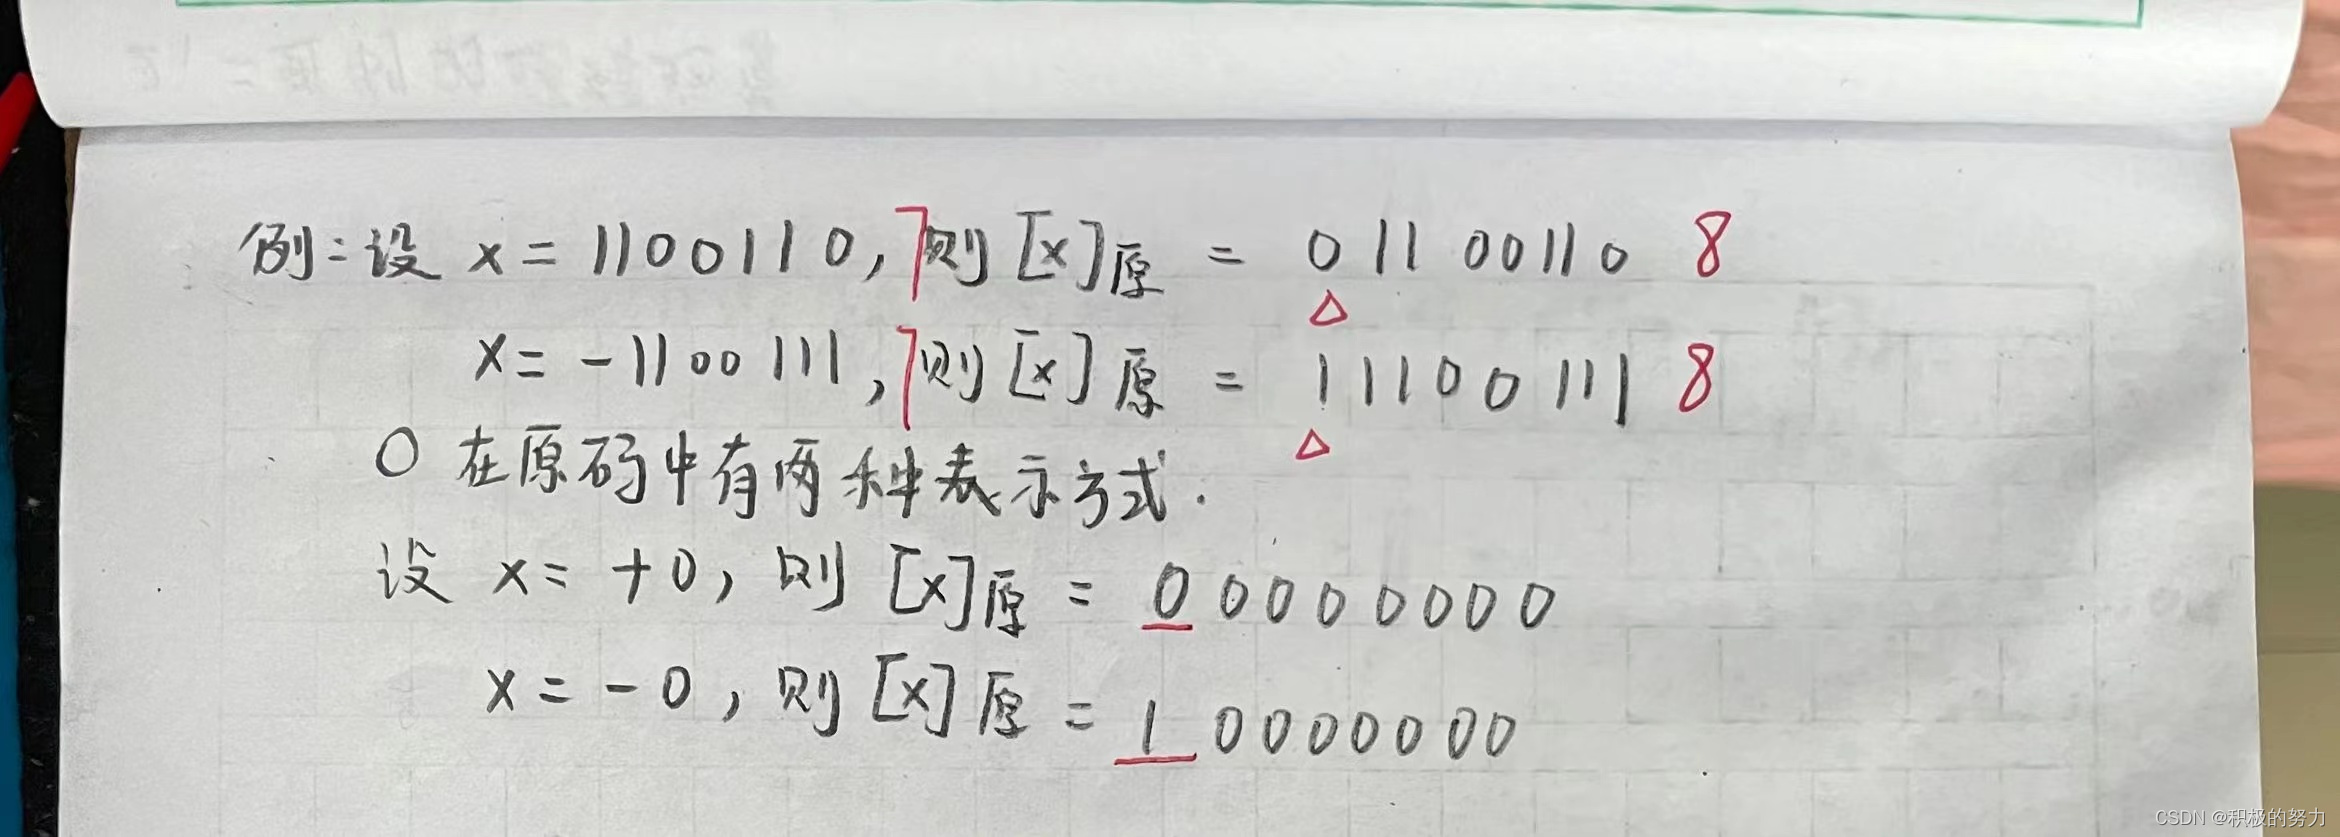 例：设 x = 1100110, 7 则 [x]原 = 01100110 8
x = -1100111, 7 则 [x]原 = 11100111 8
0 在原码中有两种表示方式.
设 x = +0, 则 [x]原 = 00000000
x = -0, 则 [x]原 = 10000000
CSDN @积极的努力